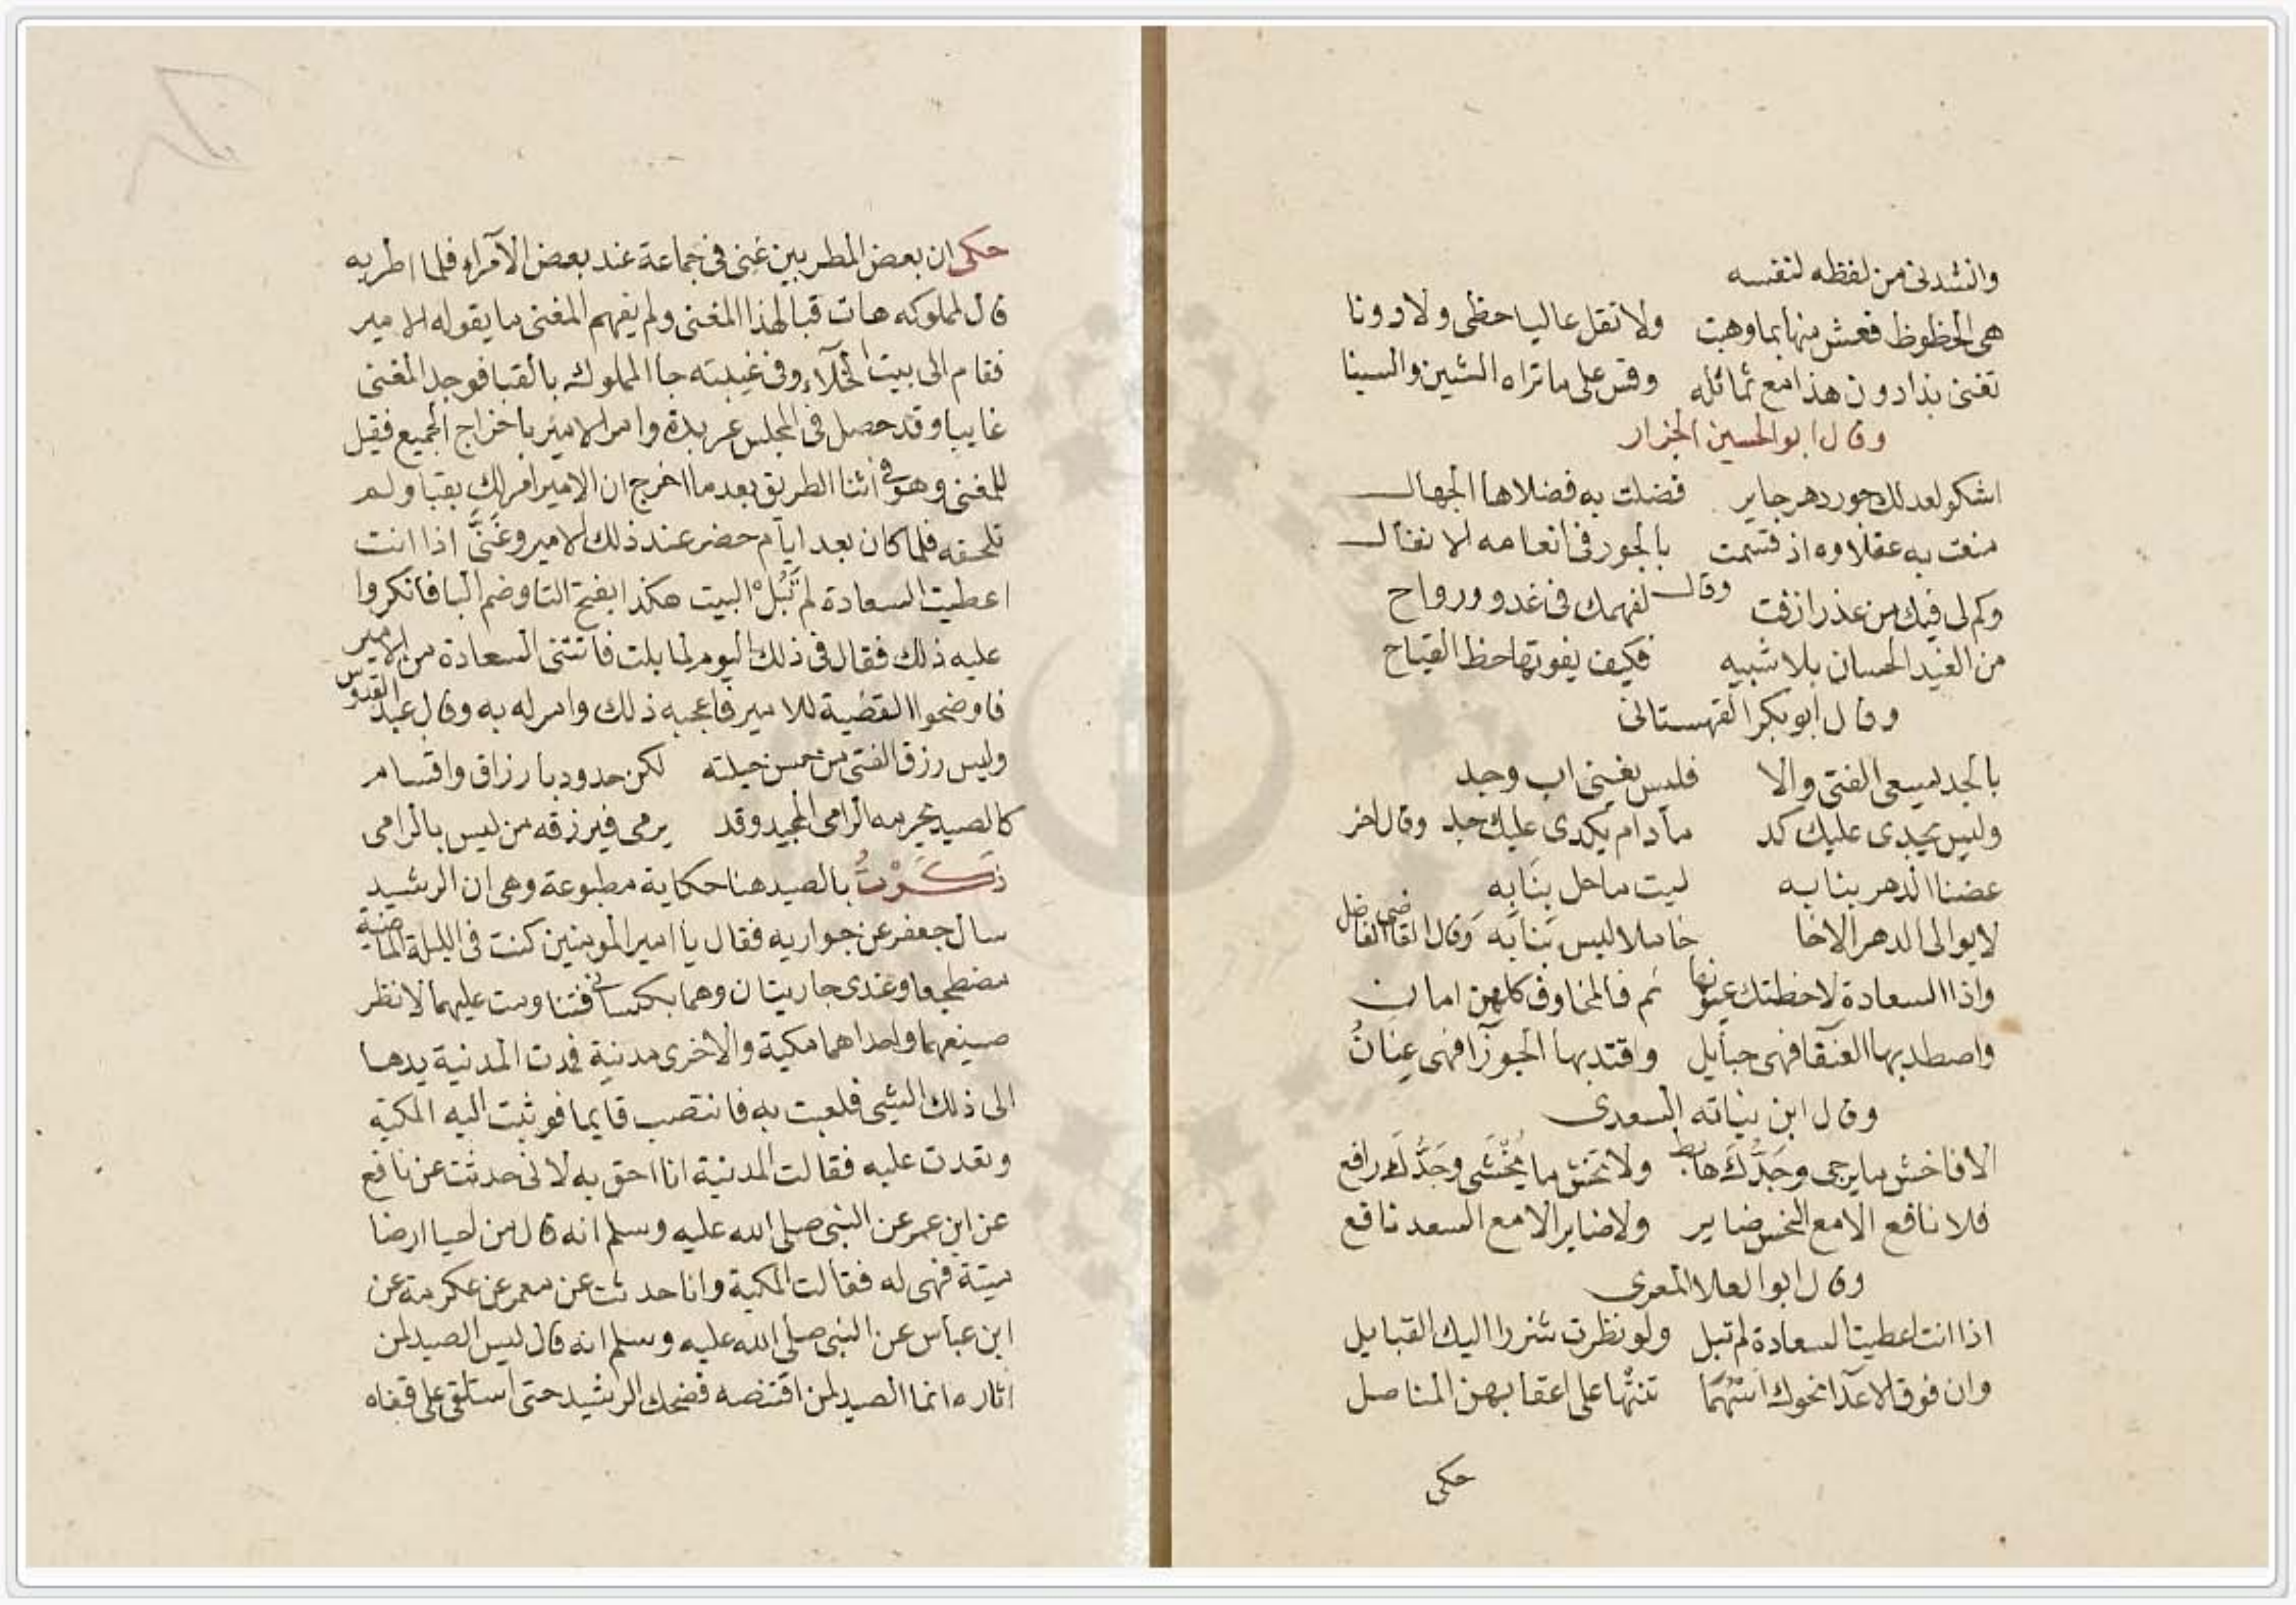 وانشدنى من لفظه لنفسه
هى الحظوظ فعش منها بما وهبت ولا تقل عاليا حظى ولا دونا
تغنى بذا دون هذا مع تماثله وقس على ما تراه الشين والسينا
وقال ابو الحسين الجزار
اشكو لعدلك جور دهر جاير فضلت به فضلاها الجهال
منعت به عقلاوه اذ قسمت بالجور فى انعامه الانفال
وكم لى فيك من عذرا زفت وقال لفهمك فى غدو ورواح
من الغيد الحسان بلا شبيه فكيف يفوتها حظ القباح
وقال ابو بكر القهستانى
بالجد يسعى الفتى والا فليس يغنى اب وجد
وليس يجدى عليك كد مادام يكدى عليك جد وقال اخر
عضنا الدهر بنابه ليت ما حل بنا به
لا يوالى الدهر الا خا خاملا ليس بنابه وقال القاضى الفاضل
واذا السعادة لاحظتك عيونها نم فالمخاوف كلهن امان
واصطد بها العنقا فهى حبايل واقتد بها الجوزا فهى عنان
وقال ابن نباته السعدى
الا فاخش ما يرجى وجدك هابط ولا تخش ما يخشى وجدك رافع
فلا نافع الا مع النحس ضاير ولا ضاير الا مع السعد نافع
وقال ابو العلا المعرى
اذا انت اعطيت السعادة لم تبل ولو نظرت شزرا اليك القبايل
وان فوق الاعدا نحوك اسهما تنثها على اعقابهن المناصل
حكى
حكى ان بعض المطربين غنى فى جماعة عند بعض الامراء فلما اطربه
قال لمملوكه هات قبا لهذا المغنى ولم يفهم المغنى ما يقوله الامير
فقام الى بيت الخلاء وفى غيبته جا المملوك بالقبا فوجد المغنى
غايبا وقد حصل فى المجلس عربدة وامر الامير باخراج الجميع فقيل
للمغنى وهو فى اثنا الطريق بعد ما اخرج ان الامير امر لك بقبا ولم
تلحقه فلما كان بعد ايام حضر عند ذلك الامير وغنى اذا انت
اعطيت السعادة لم تبل البيت هكذا بفتح التا وضم البا فانكروا
عليه ذلك فقال فى ذلك اليوم لما بلت فاتتنى السعادة من الامير
فاوضحوا القضية للامير فاعجبه ذلك وامر له به وقال عبد القدوس
وليس رزق الفتى من حسن حيلته لكن حدود بارزاق واقسام
كالصيد يحرمه الرامى المجيد وقد يرمى فيرزقه من ليس بالرامى
ذكرت بالصيد هنا حكاية مطبوعة وهى ان الرشيد
سال جعفر عن جواريه فقال يا امير المومنين كنت فى الليلة الماضية
مضطجعا وعندى جاريتان وهما يكبسانى فتناومت عليهما لانظر
صنيعهما واحداهما مكية والاخرى مدنية فمدت المدنية يدها
الى ذلك الشى فلعبت به فانتصب قايما فوثبت اليه المكية
وقعدت عليه فقالت المدنية انا احق به لانى حدثت عن نافع
عن ابن عمر عن النبى صلى الله عليه وسلم انه قال من احيا ارضا
ميتة فهى له فقالت المكية وانا حدثت عن معمر عن عكرمة عن
ابن عباس عن النبى صلى الله عليه وسلم انه قال ليس الصيد لمن
اثاره انما الصيد لمن اقتنصه فضحك الرشيد حتى استلقى على قفاه